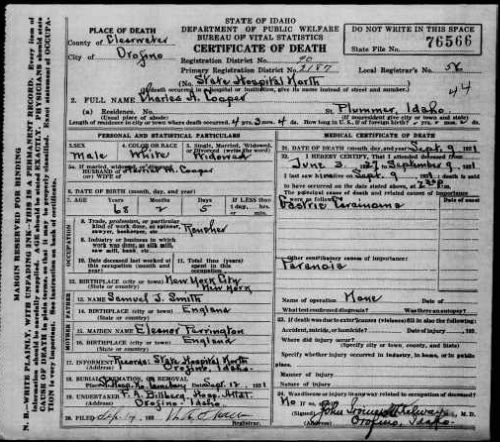 STATE OF IDAHO
DEPARTMENT OF PUBLIC WELFARE
BUREAU OF VITAL STATISTICS
CERTIFICATE OF DEATH
DO NOT WRITE IN THIS SPACE
State File No. 76566
PLACE OF DEATH
County of Clearwater
City of Orofino
Registration District No. 90
Primary Registration District No. 2187
Local Registrar's No. 56
State Hospital North
(If death occurred in Hospital or Institution, give its name instead of street and number.)
44
2. FULL NAME Charles A. Cooper
(a) Residence. No. St. Plummer, Idaho.
(If nonresident give city or town and state)
Length of residence in city or town where death occurred 4 yrs. 3 mos. 4 ds. How long in U. S., if of foreign birth? yrs. mos. ds.
PERSONAL AND STATISTICAL PARTICULARS
3. SEX Male
4. COLOR OR RACE White
5. Single, Married, Widowed, or Divorced (write the word) Widowed
5a. If married, widowed, or divorced
HUSBAND of M. Cooper
6. DATE OF BIRTH (month, day, and year)
7. AGE Years 68 Months 2 Days 5 If LESS than
8. Trade, profession, or particular kind of work done, as spinner, sawyer, bookkeeper, etc. Rancher
9. Industry or business in which work was done, as silk mill, saw mill, bank, etc.
10. Date deceased last worked at this occupation (month and year)
11. Total time (years) spent in this occupation
12. BIRTHPLACE (city or town) New York City
(State or country) New York
13. NAME Samuel J. Smith
14. BIRTHPLACE (city or town)
(State or country) England
15. MAIDEN NAME Eleanor Ferrington
16. BIRTHPLACE (city or town)
(State or country) England
17. INFORMANT Records: State Hospital North
(Address) Orofino, Idaho.
18. BURIAL, CREMATION, OR REMOVAL
Place St. Hosp. No. Cemetery Date Sept. 12 1931
19. UNDERTAKER F. A. Billberg, Hosp. Attdt.
(Address) Orofino, Idaho.
20. FILED Sep. 14
MEDICAL CERTIFICATE OF DEATH
21. DATE OF DEATH (month, day, and year) Sept. 9 1931
22. I HEREBY CERTIFY, That I attended deceased from
June 3 1927, to September 9, 1931
I last saw him alive on Sept. 9, 1931, death is said
to have occurred on the date stated above, at
The principal cause of death and related causes of importance
Gastric Carcinoma
Other contributory causes of importance:
Paranoia
Name of operation None
What test confirmed diagnosis? Was there an autopsy?
23. If death was due to external causes (violence) fill in also the following:
Accident, suicide, or homicide? Date of injury
Where did injury occur?
(Specify city or town, county, and State)
Specify whether injury occurred in industry, in home, or in public place.
Manner of injury
Nature of injury
24. Was disease or injury in any way related to occupation of deceased?
No If so, specify
(Signed) M. D.
(Address) Orofino, Idaho.
MARGIN RESERVED FOR BINDING